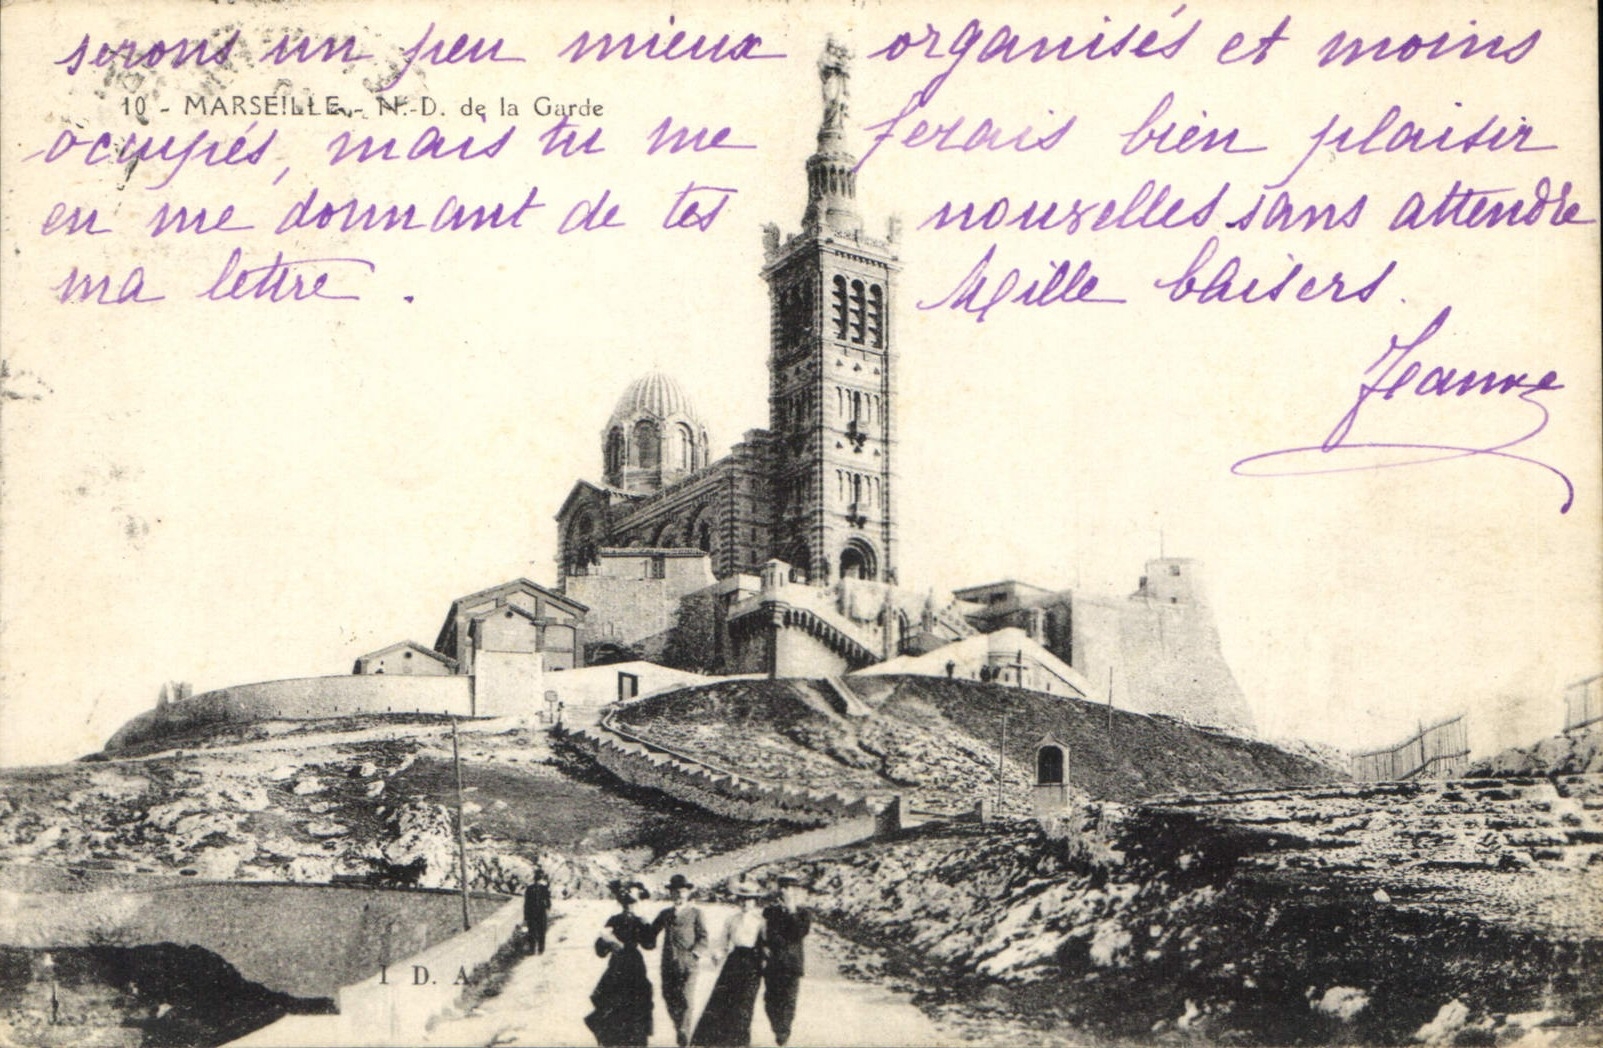 serons un peu mieux organisés et moins
10 - MARSEILLE. - N.-D. de la Garde
occupés, mais tu me ferais bien plaisir
en me donnant de tes nouvelles sans attendre
ma lettre. Mille baisers.
Jeanne
I D. A